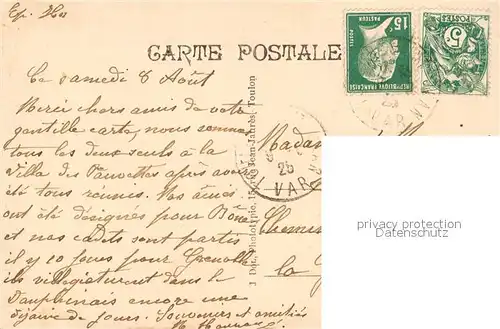 CARTE POSTALE
15c
PASTEUR
POSTES
REPUBLIQUE FRANÇAISE
POSTES
5
Ce samedi 8 Août
Merci chers amis de votre
gentille carte, nous sommes
tous les deux seuls à la
Villa des Fauvettes après avoir
été tous réunis. Nos aînés
ont été désignés pour Bône
et nos cadets sont partis
il y 10 jours pour Grenoble
ils villégiaturent dans le
Dauphinais encore une
dizaine de jours. Souvenirs et amitiés
J. Dol, Phototypie, Jean-Jaurès, Toulon
25
VAR
25
VAR
Madam
Chemin
la
privacy protection
Datenschutz